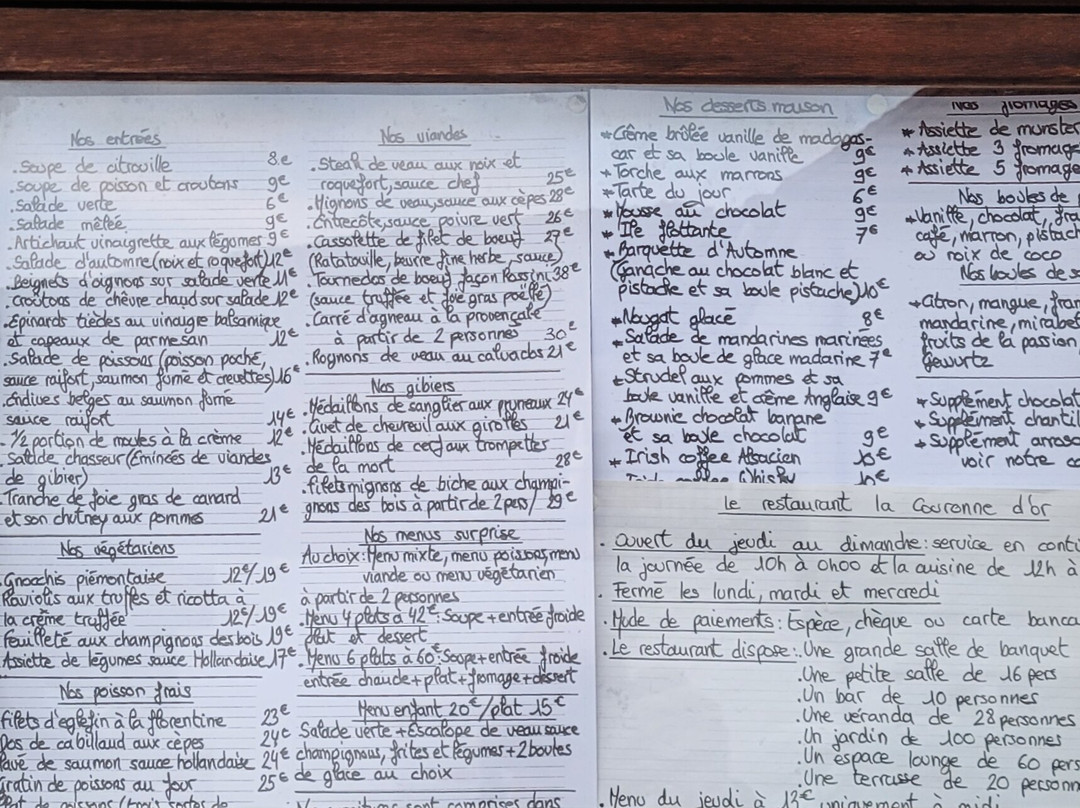 Nos entrées
.Soupe de citrouille 8.€
.soupe de poisson et croutons 9€
.Salade verte 6€
.Salade mêlée 9€
.Artichaut vinaigrette aux légumes 9€
.Salade d'automne (noix et roquefort) 12€
.Beignets d'oignons sur salade verte 11€
.Croûtons de chêvre chaud sur salade 12€
.Epinards tièdes au vinaigre balsamique
et capeaux de parmesan 12€
.Salade de poissons (poisson poché,
sauce raifort, saumon fumé et crevettes) 16€
.Endives belges au saumon fumé
sauce raifort 14€
.1/2 portion de moules à la crème 12€
.Salade chasseur (Emincés de viandes
de gibier) 13€
.Tranche de foie gras de canard
et son chutney aux pommes 21€
Nos végétariens
.Gnocchis piémontaise 12€/19€
Raviolis aux truffes et ricotta à
la crème truffée 12€/19€
Feuilleté aux champignons des bois 19€
Assiette de légumes sauce Hollandaise 17€
Nos poisson frais
Filets d'eglefin à la florentine 23€
Dos de cabillaud aux cèpes 24€
Pavé de saumon sauce hollandaise 24€
Gratin de poissons au four 25€
de poissons (trois sortes de
Nos viandes
.Steak de veau aux noix et
roquefort, sauce chef 25€
.Mignons de veau, sauce aux cèpes 28€
.Entrecôte, sauce poivre vert 26€
.Cassolette de filet de boeuf 27€
(Ratatouille, beurre fine herbe, sauce)
.Tournedos de boeuf façon Rossini 38€
(sauce truffée et foie gras poêlé)
.Carré d'agneau à la provençale
à partir de 2 personnes 30€
.Rognons de veau au calvados 21€
Nos gibiers
.Médaillons de sanglier aux pruneaux 24€
.Civet de chevreuil aux girolles 21€
.Médaillons de cerf aux trompettes
de la mort 28€
.Filets mignons de biche aux champi-
gnons des bois à partir de 2 pers/ 29€
Nos menus surprise
Au choix: Menu mixte, menu poissons, menu
viande ou menu végétarien
à partir de 2 personnes
.Menu 4 plats à 42€: Soupe + entrée froide
plat et dessert
.Menu 6 plats à 60€: Soupe + entrée froide
entrée chaude + plat + fromage + dessert
Menu enfant 20€/plat 15€
Salade verte + Escalope de veau sauce
champignons, frites et légumes + 2 boules
de glace au choix
sont comprises dans
Nos desserts maison
*Crème brûlée vanille de madagas-
car et sa boule vanille 9€
*Torche aux marrons 9€
*Tarte du jour 6€
*Mousse au chocolat 9€
*Ile flottante 7€
*Barquette d'Automne
(Ganache au chocolat blanc et
pistache et sa boule pistache) 10€
*Nougat glacé 8€
*Salade de mandarines marinées
et sa boule de glace madarine 7€
*Strudel aux pommes et sa
boule vanille et crème Anglaise 9€
*Brownie chocolat banane
et sa boule chocolat 9€
*Irish coffee Alsacien 10€
Whisky 10€
Nos fromages
*Assiette de munster
*Assiette 3 fromage
*Assiette 5 fromage
Nos boules de
*Vanille, chocolat, fra
café, marron, pistach
ou noix de coco
Nos boules de s
*Citron, mangue, fram
mandarine, mirabel
fruits de la passion,
gewurtz
*Supplément chocolat
*Supplément chantil
*Supplément arroso
voir notre ca
Le restaurant la Couronne d'or
.Ouvert du jeudi au dimanche: service en conti
la journée de 10h à 0h00 et la cuisine de 12h à
.Fermé les lundi, mardi et mercredi
.Mode de paiements: Espèce, chèque ou carte banca
.Le restaurant dispose: .Une grande salle de banquet
.Une petite salle de 16 pers
.Un bar de 10 personnes
.Une véranda de 28 personnes
.Un jardin de 100 personnes
.Un espace lounge de 60 pers
.Une terrasse de 20 personn
.Menu du jeudi à 13€ uniquement à midi